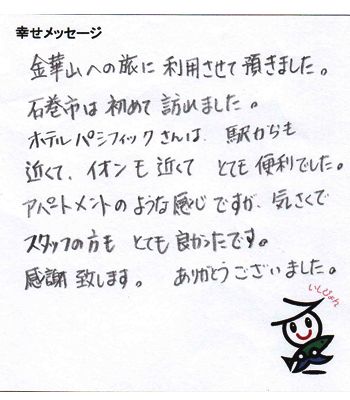 幸せメッセージ
金華山への旅に利用させて頂きました。
石巻市は初めて訪れました。
ホテルパシフィックさんは、駅からも
近くて、イオンも近くてとても便利でした。
アパートメントのような感じですが、気さくで
スタッフの方もとても良かったです。
感謝致します。ありがとうございました。
いしぴょん